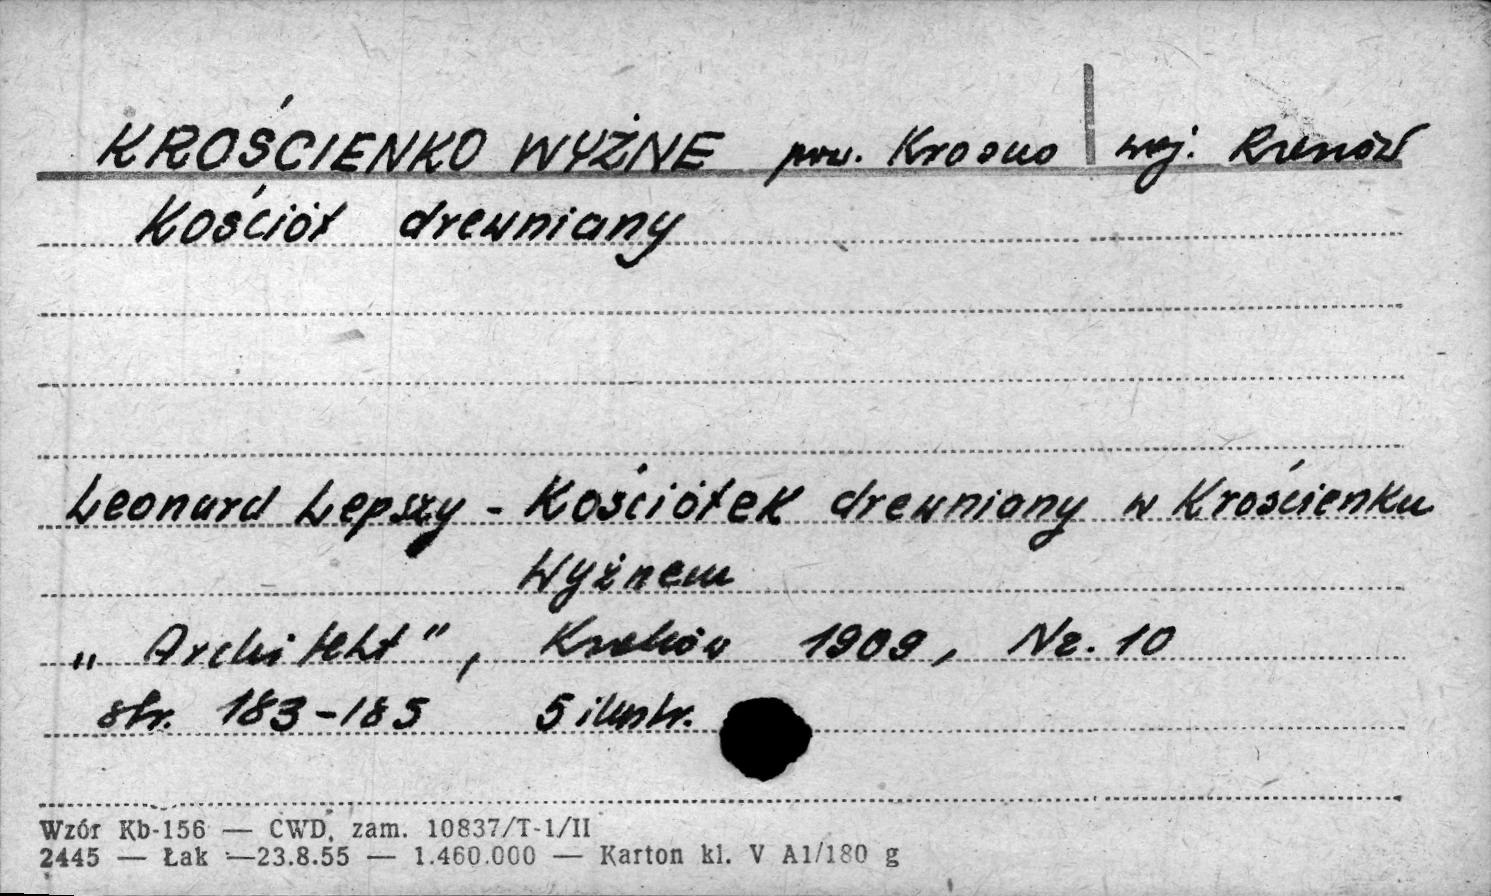 KROŚCIENKO WYŻNE pow. Krosno | woj. Rzeszów
Kościół drewniany
Leonard Lepszy - Kościółek drewniany w Krościenku
Wyżnem
„Architekt", Kraków 1909, Nr. 10
str. 183-185 5 ilustr.
Wzór Kb-156 — CWD, zam. 10837/T-1/II
2445 — Łak —23.8.55 — 1.460.000 — Karton kl. V A1/180 g